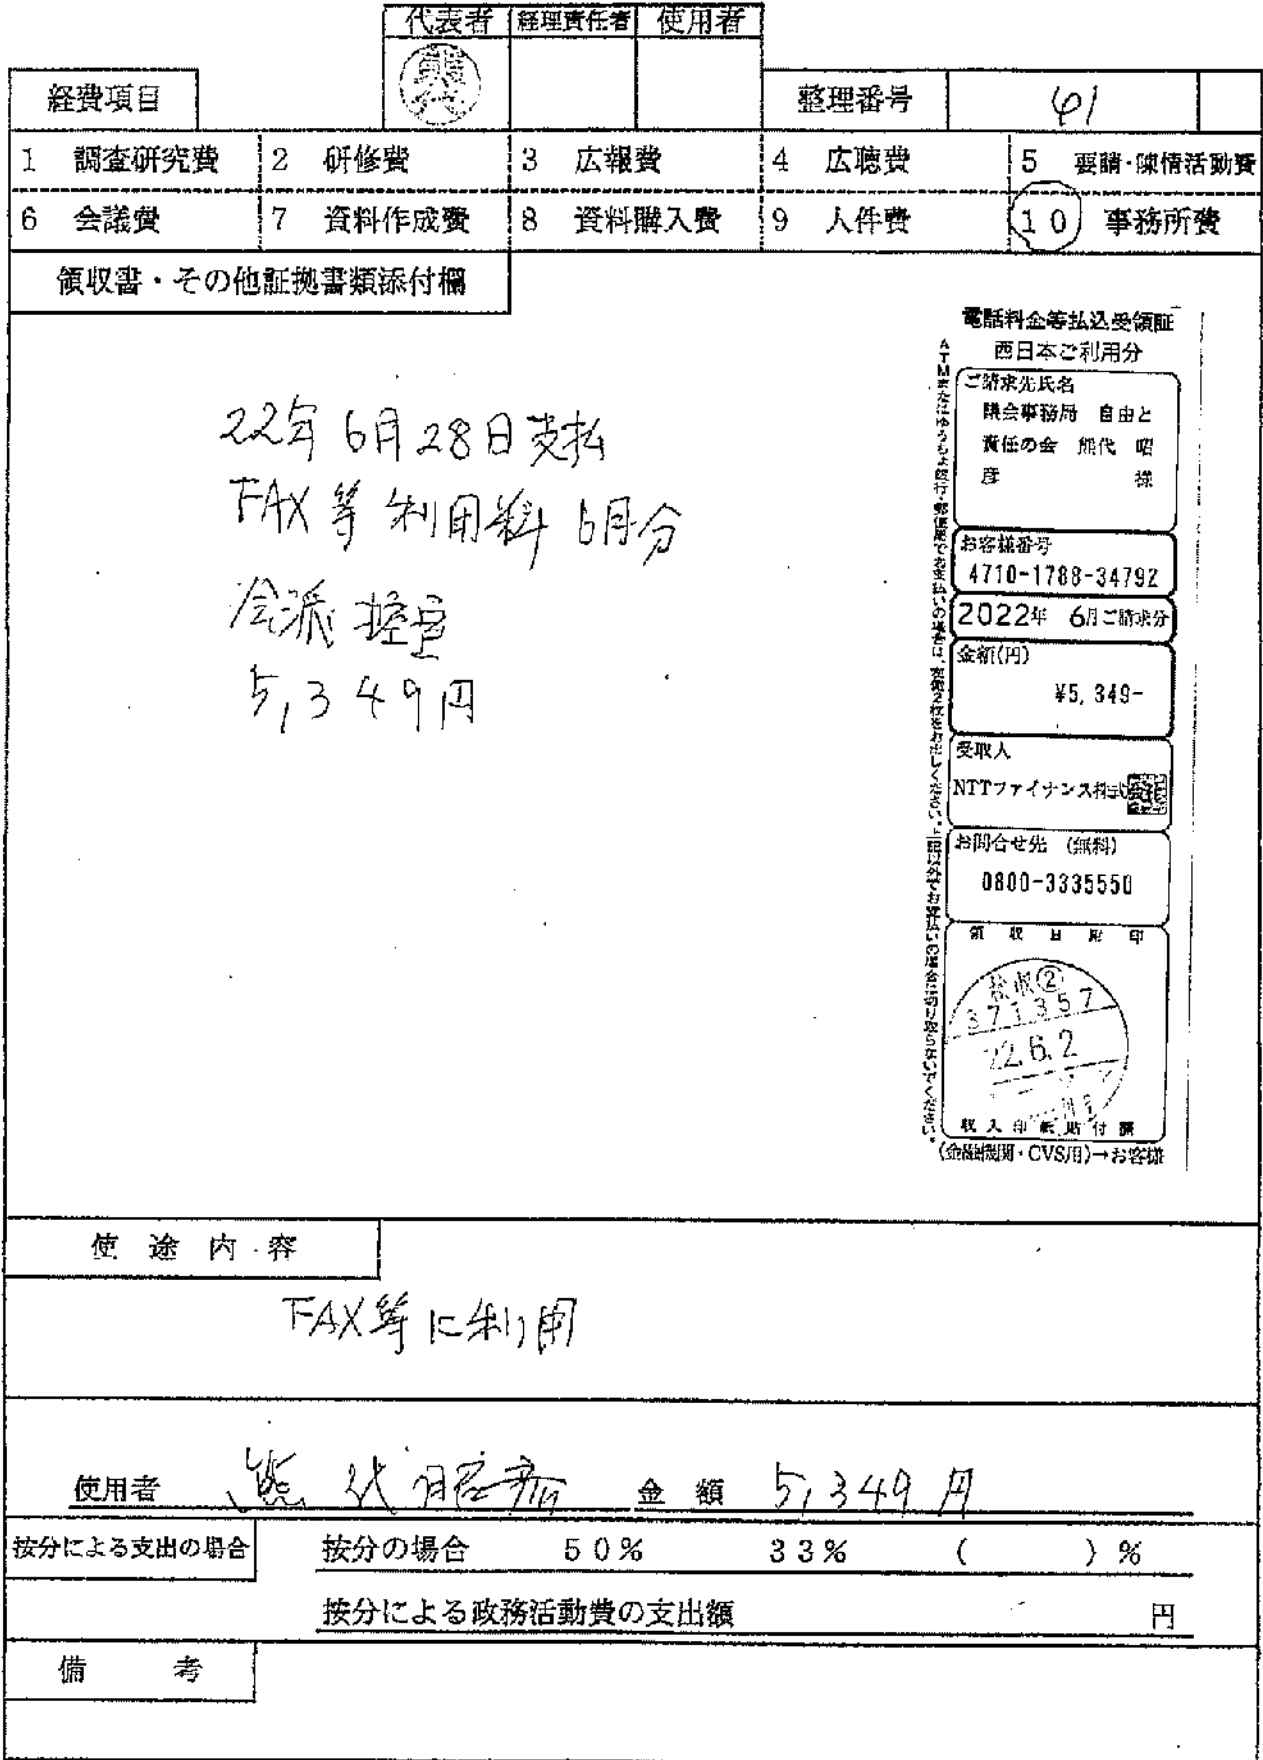 代表者 経理責任者 使用者
熊代
経費項目
整理番号 61
1 調査研究費 2 研修費 3 広報費 4 広聴費 5 要請・陳情活動費
6 会議費 7 資料作成費 8 資料購入費 9 人件費 10 事務所費
領収書・その他証拠書類添付欄
22年6月28日支払
FAX等利用料 6月分
会派控室
5,349円
電話料金等払込受領証
西日本ご利用分
ご請求先氏名
議会事務局 自由と
責任の会 熊代 昭
彦 様
お客様番号
4710-1788-34792
2022年 6月ご請求分
金額(円)
¥5,349-
受取人
NTTファイナンス株式会社
お問合せ先 (無料)
0800-3335550
領収日附印
371357
22.6.2
収入印紙貼付欄
(金融機関・CVS用)→お客様
使途内容
FAX等に利用
使用者 熊代昭彦 金額 5,349円
按分による支出の場合 按分の場合 50% 33% ( )%
按分による政務活動費の支出額 円
備考